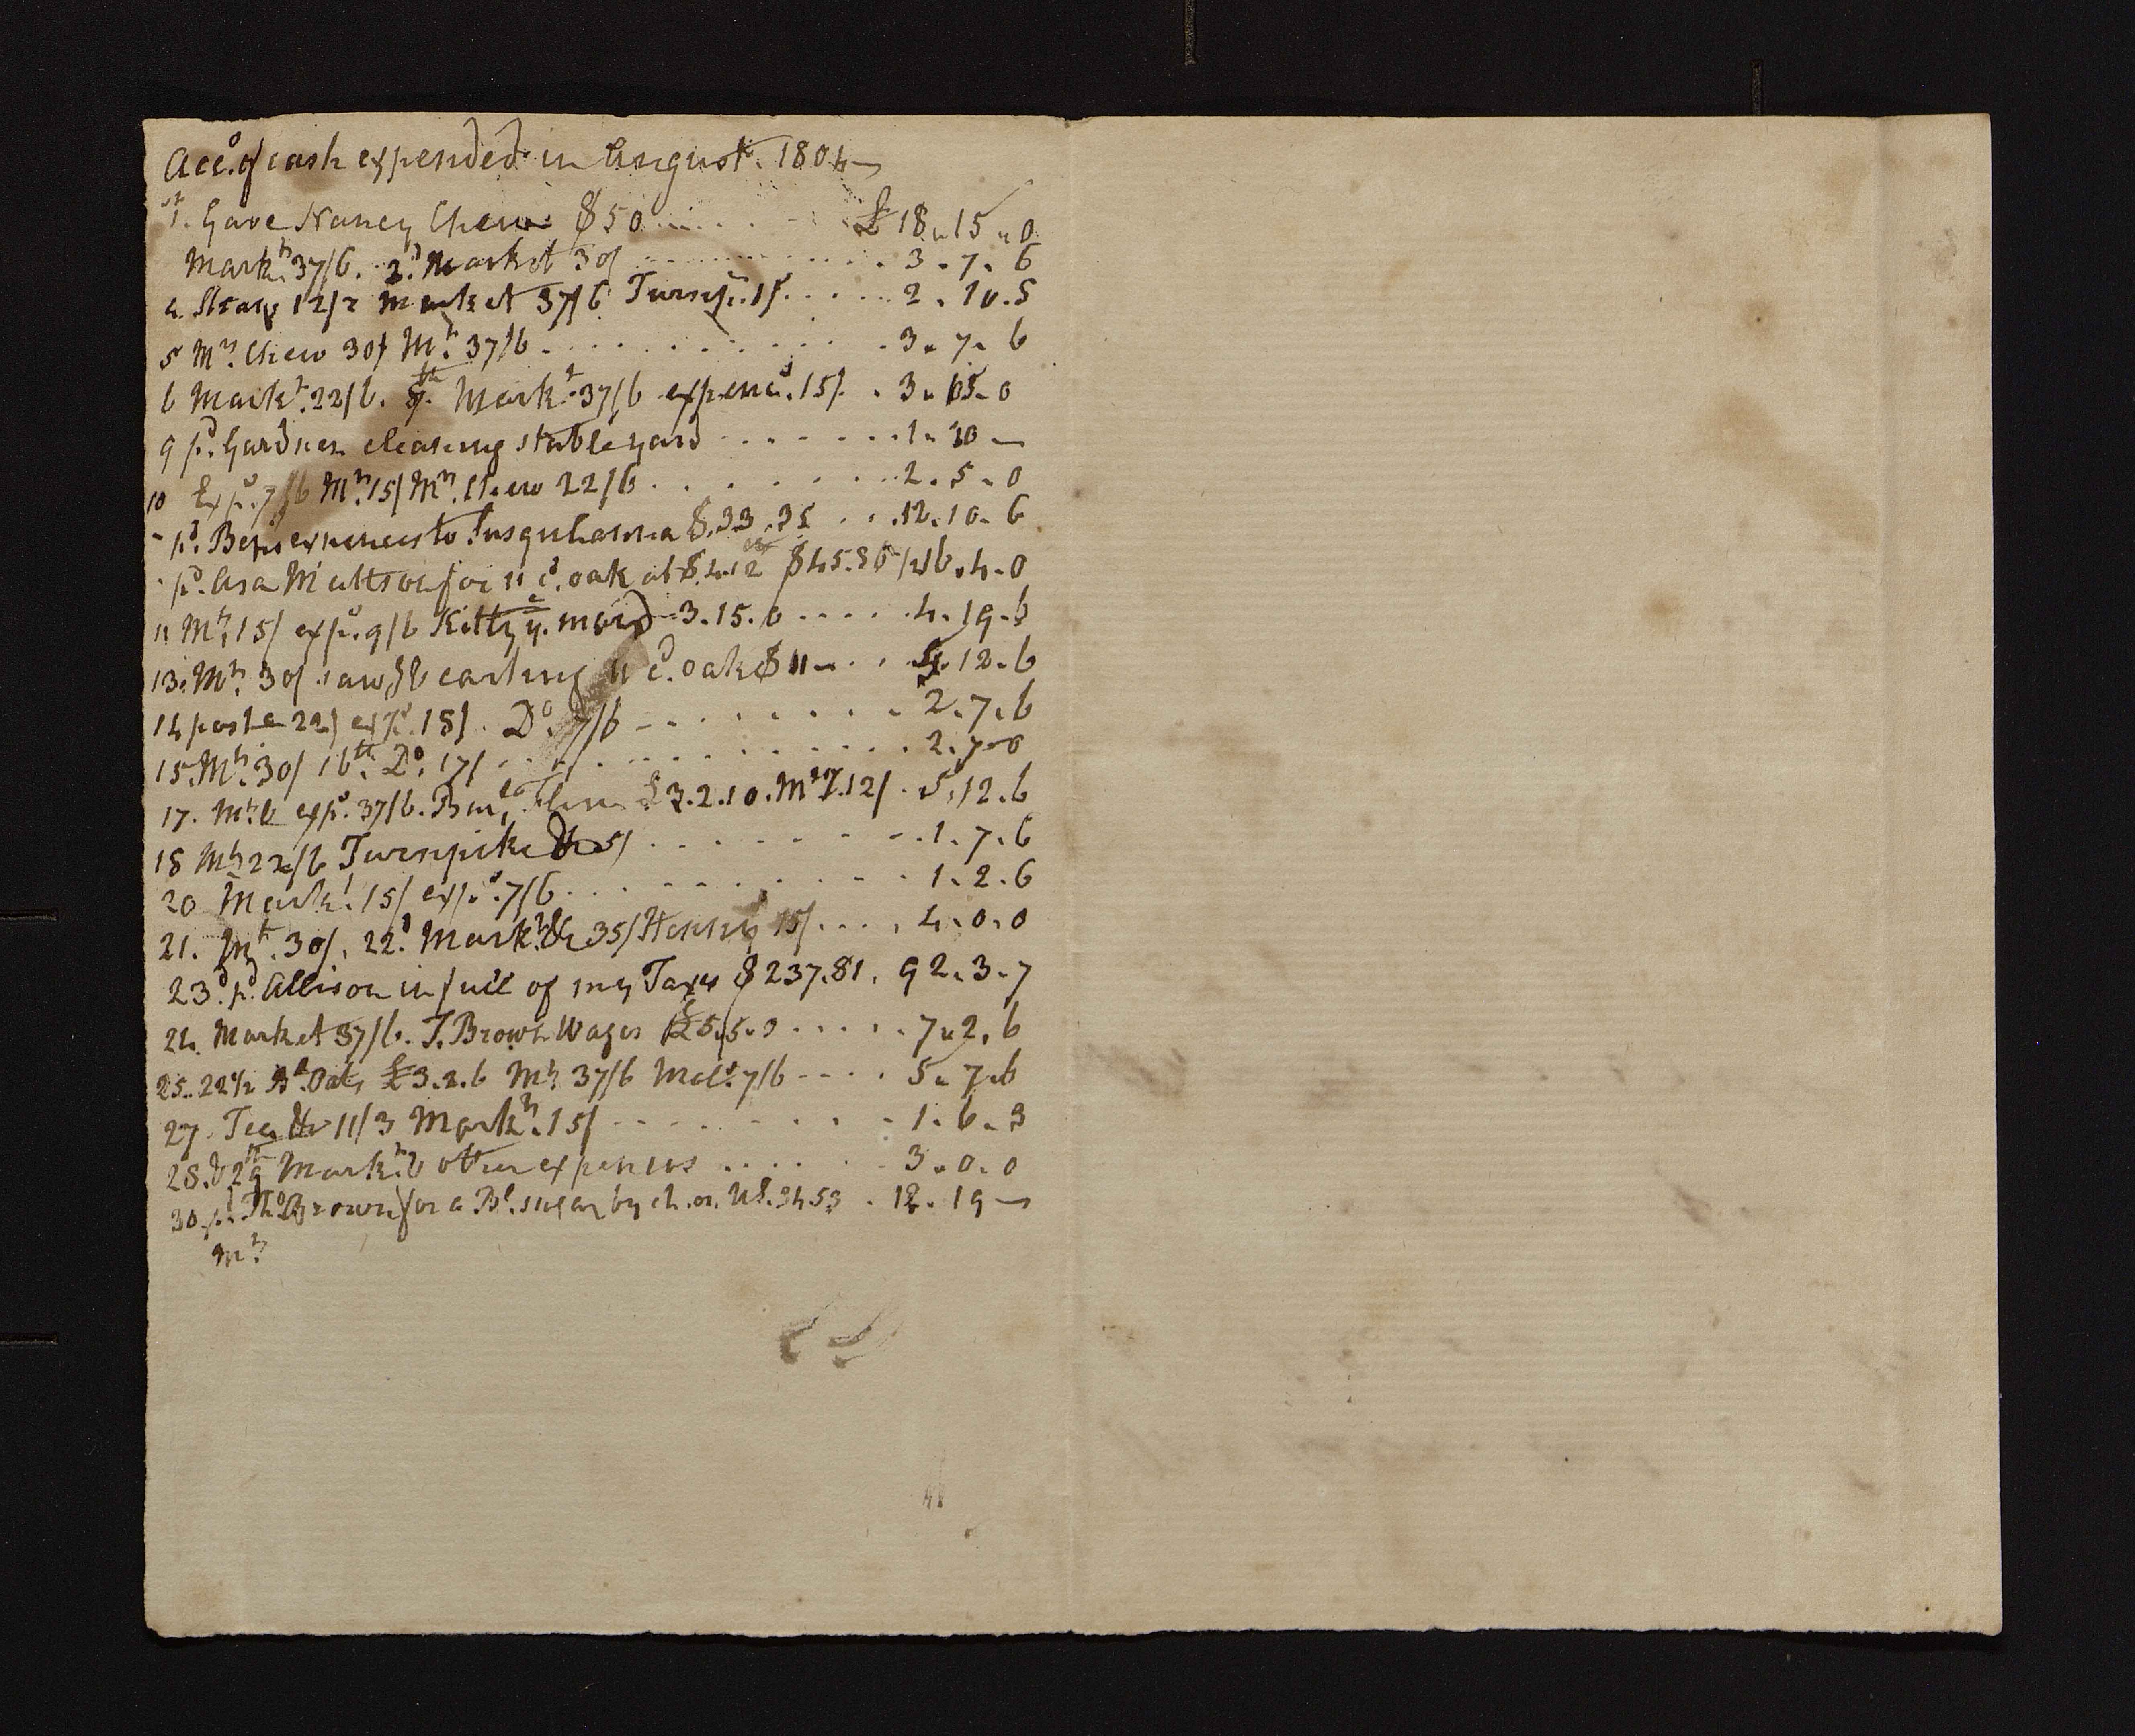 Acc.t of cash expended in August. 1804
1st. Gave Nancy Chew $50 ...... £18 " 15 " 0
Mark.t 37/6. 2.d Market 30/ ........... 3 . 7 . 6
4. Straw 12/2 Market 37/6 Turnp. 1/ ..... 2 . 10 . 5
5 M.rs Chew 30/ M.t 37/6 ........... 3 . 7 . 6
6 Mark.t 22/6. 8.th Mark.t 37/6 expenc.s 15/. . 3 . 15 . 0
9 p.d Gardner cleaning stable yard ....... 1 " 10 —
10 Exp.s 7/6 M.t 15/ M.rs Chew 22/6 ........ 2 . 5 . 0
" p.d Bens expences to Susquhanna $.33.35 ... 12 . 10 . 6
" p.d Asa Mattson for 11 C.d oak at $.4.12 $45.36 / 16 . 4 . 0
11 M.t 15/ exp.s 9/6 Kitty y.e maid 3.15.0 ..... 4 . 19 . 6
13. M.t 30/ saw.g & carting 11 C.d oak $11 ... 5 . 12 . 6
14 postage 22/ exp.s 18/. D.o 7/6 ......... 2 . 7 . 6
15. M.t 30/ 16.th D.o 17/ ............ 2 . 7 . 0
17. M.t & exp.s 37/6. £3.2.10. M.t 12/ . 5 . 12 . 6
18 M.t 22/6 Turnpike &c 5/ ........ 1 . 7 . 6
20 Mark.t 15/ exp.s 7/6 ........... 1 . 2 . 6
21. M.t 30/. 22.d Mark.t &c 35/ Henry 15/ .... 4 . 0 . 0
23.d p.d Allison in full of my Taxes $237.81 . 92 . 3 . 7
24. Market 37/6. T. Brown Wages £5.5.0 ..... 7 " 2 . 6
25. 22½ B.l Oats £3.2.6 M.t 37/6 7/6 .... 5 . 7 . 6
27. Tea &c 11/3 Mark.t 15/ ......... 1 . 6 . 3
28. & 29.th Mark.t & other expences ...... 3 . 0 . 0
30 p.d Tho.s Brown for a B.l sugar by ch. on US. 34.53 . 12 . 19 —
M.t